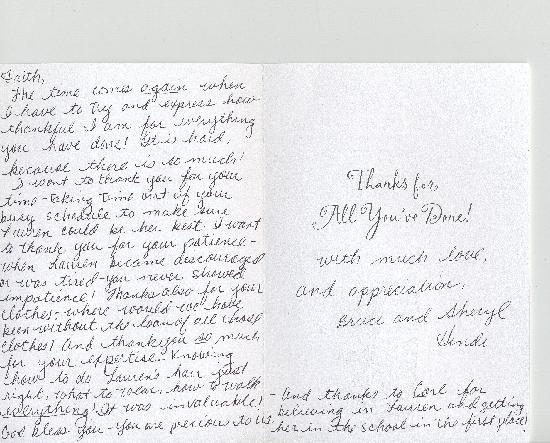 Faith,
The time comes again when
I have to try and express how
thankful I am for everything
you have done! It is hard,
because there is so much!
I want to thank you for your
time-taking time out of your
busy schedule to make sure
Lauren could be her best. I want
to thank you for your patience-
when Lauren became discouraged
or was tired-you never showed
impatience! Thanks also for your
clothes-where would we have
been without the loan of all those
clothes! And thank you so much
for your expertise. Knowing
how to do Lauren's hair just
right, what to wear, how to walk
everything! It was invaluable!
God bless you-you are precious to us.
Thanks for,
All You've Done!
with much love,
and appreciation,
Bruce and Sheryl
- and thanks to for
believing in Lauren and getting
her in the school in the first place!